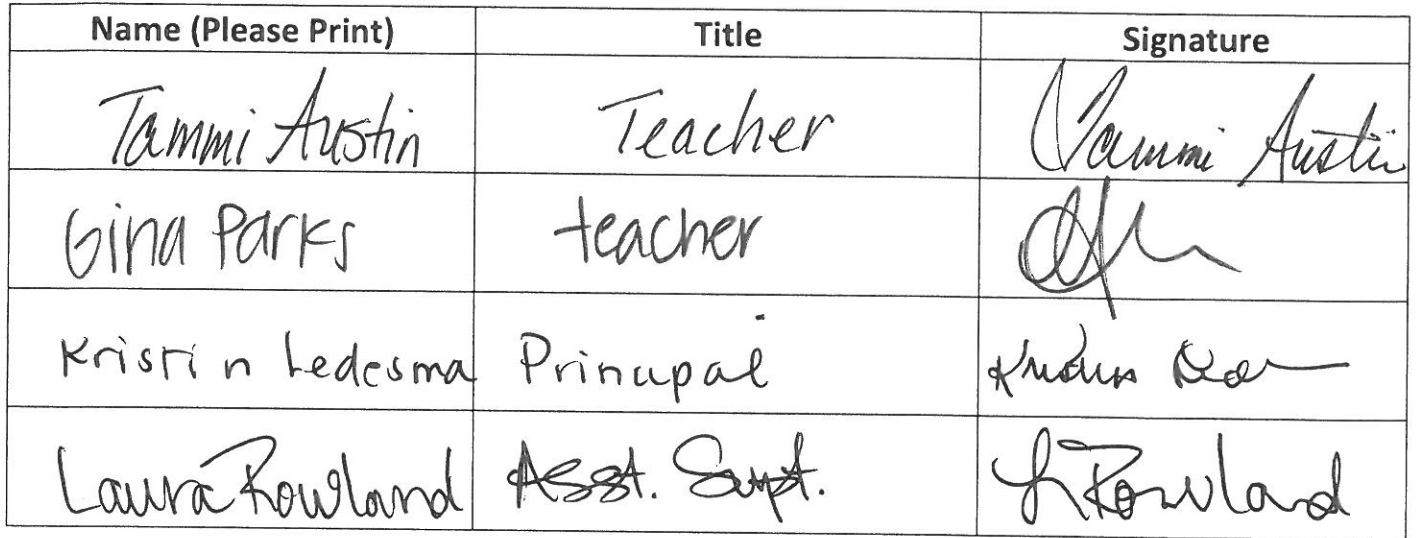 Name (Please Print) Title Signature
Tammi Austin Teacher Tammi Austin
Gina Parks teacher
Kristin Ledesma Principal
Laura Rowland Asst. Supt. L Rowland